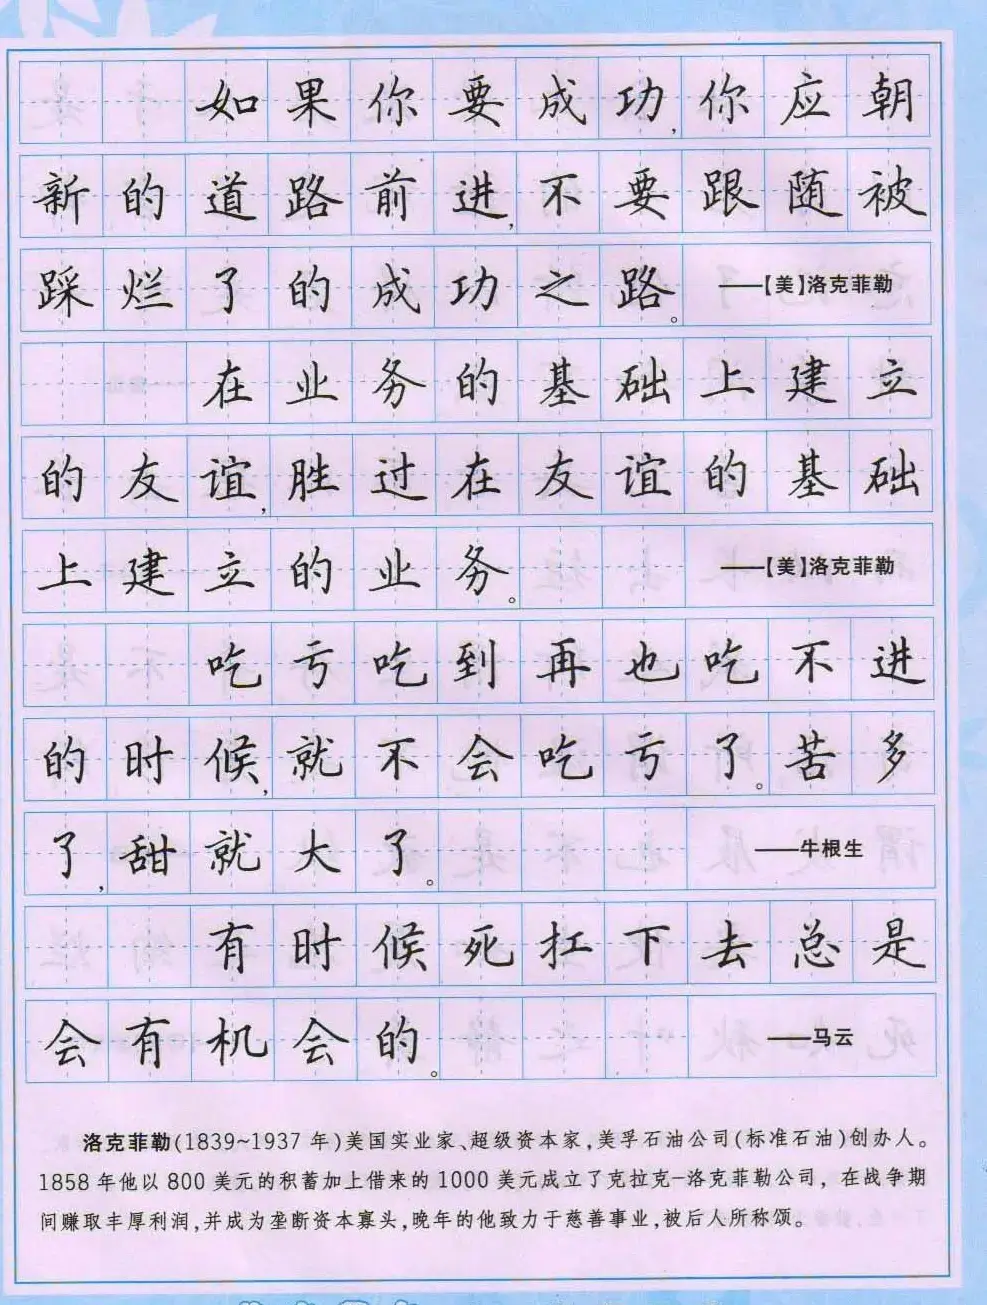 如果你要成功,你应朝
新的道路前进,不要跟随被
踩烂了的成功之路。 ——【美】洛克菲勒
在业务的基础上建立
的友谊,胜过在友谊的基础
上建立的业务。 ——【美】洛克菲勒
吃亏吃到再也吃不进
的时候,就不会吃亏了。苦多
了,甜就大了。 ——牛根生
有时候死扛下去总是
会有机会的。 ——马云
洛克菲勒(1839~1937年)美国实业家、超级资本家,美孚石油公司(标准石油)创办人。
1858年他以800美元的积蓄加上借来的1000美元成立了克拉克-洛克菲勒公司，在战争期
间赚取丰厚利润,并成为垄断资本寡头,晚年的他致力于慈善事业,被后人所称颂。